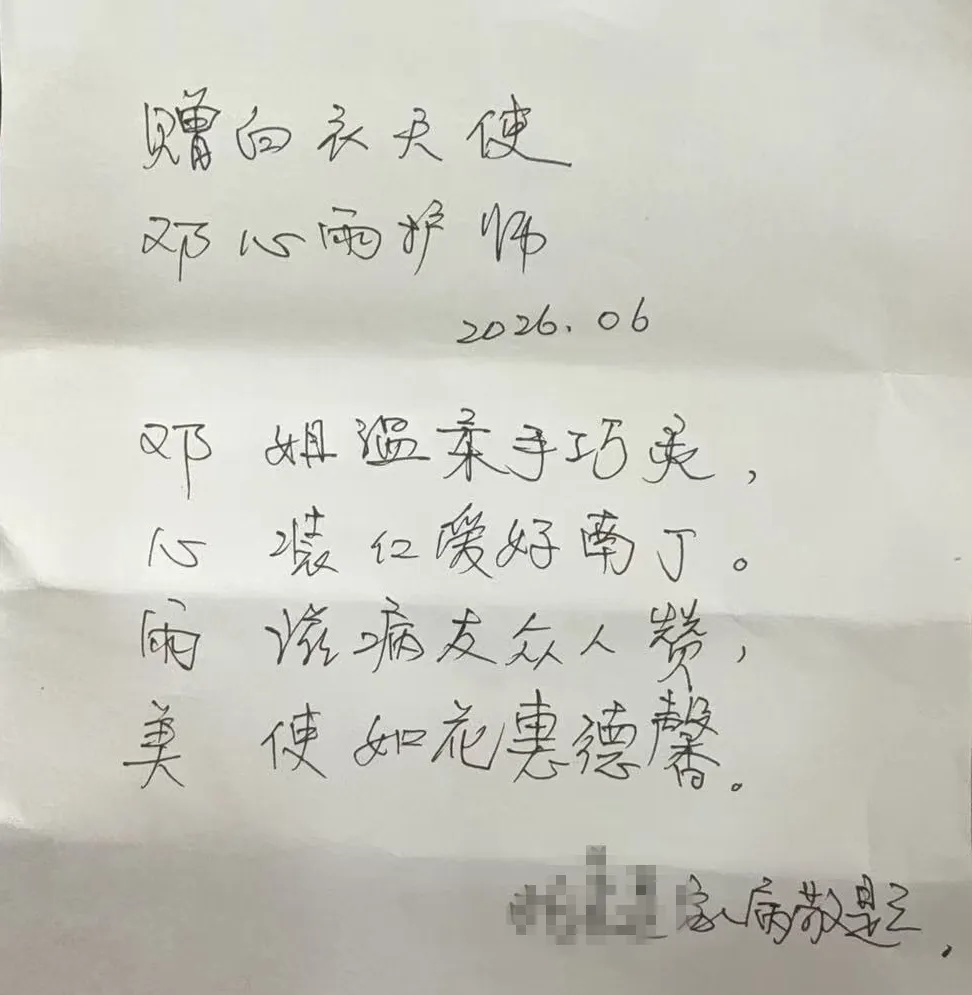 赠白衣天使
邓心雨护师
2026.06
邓姐温柔手巧灵，
心装仁爱好南丁。
雨滋病友众人赞，
美使如花惠德馨。
病敬题